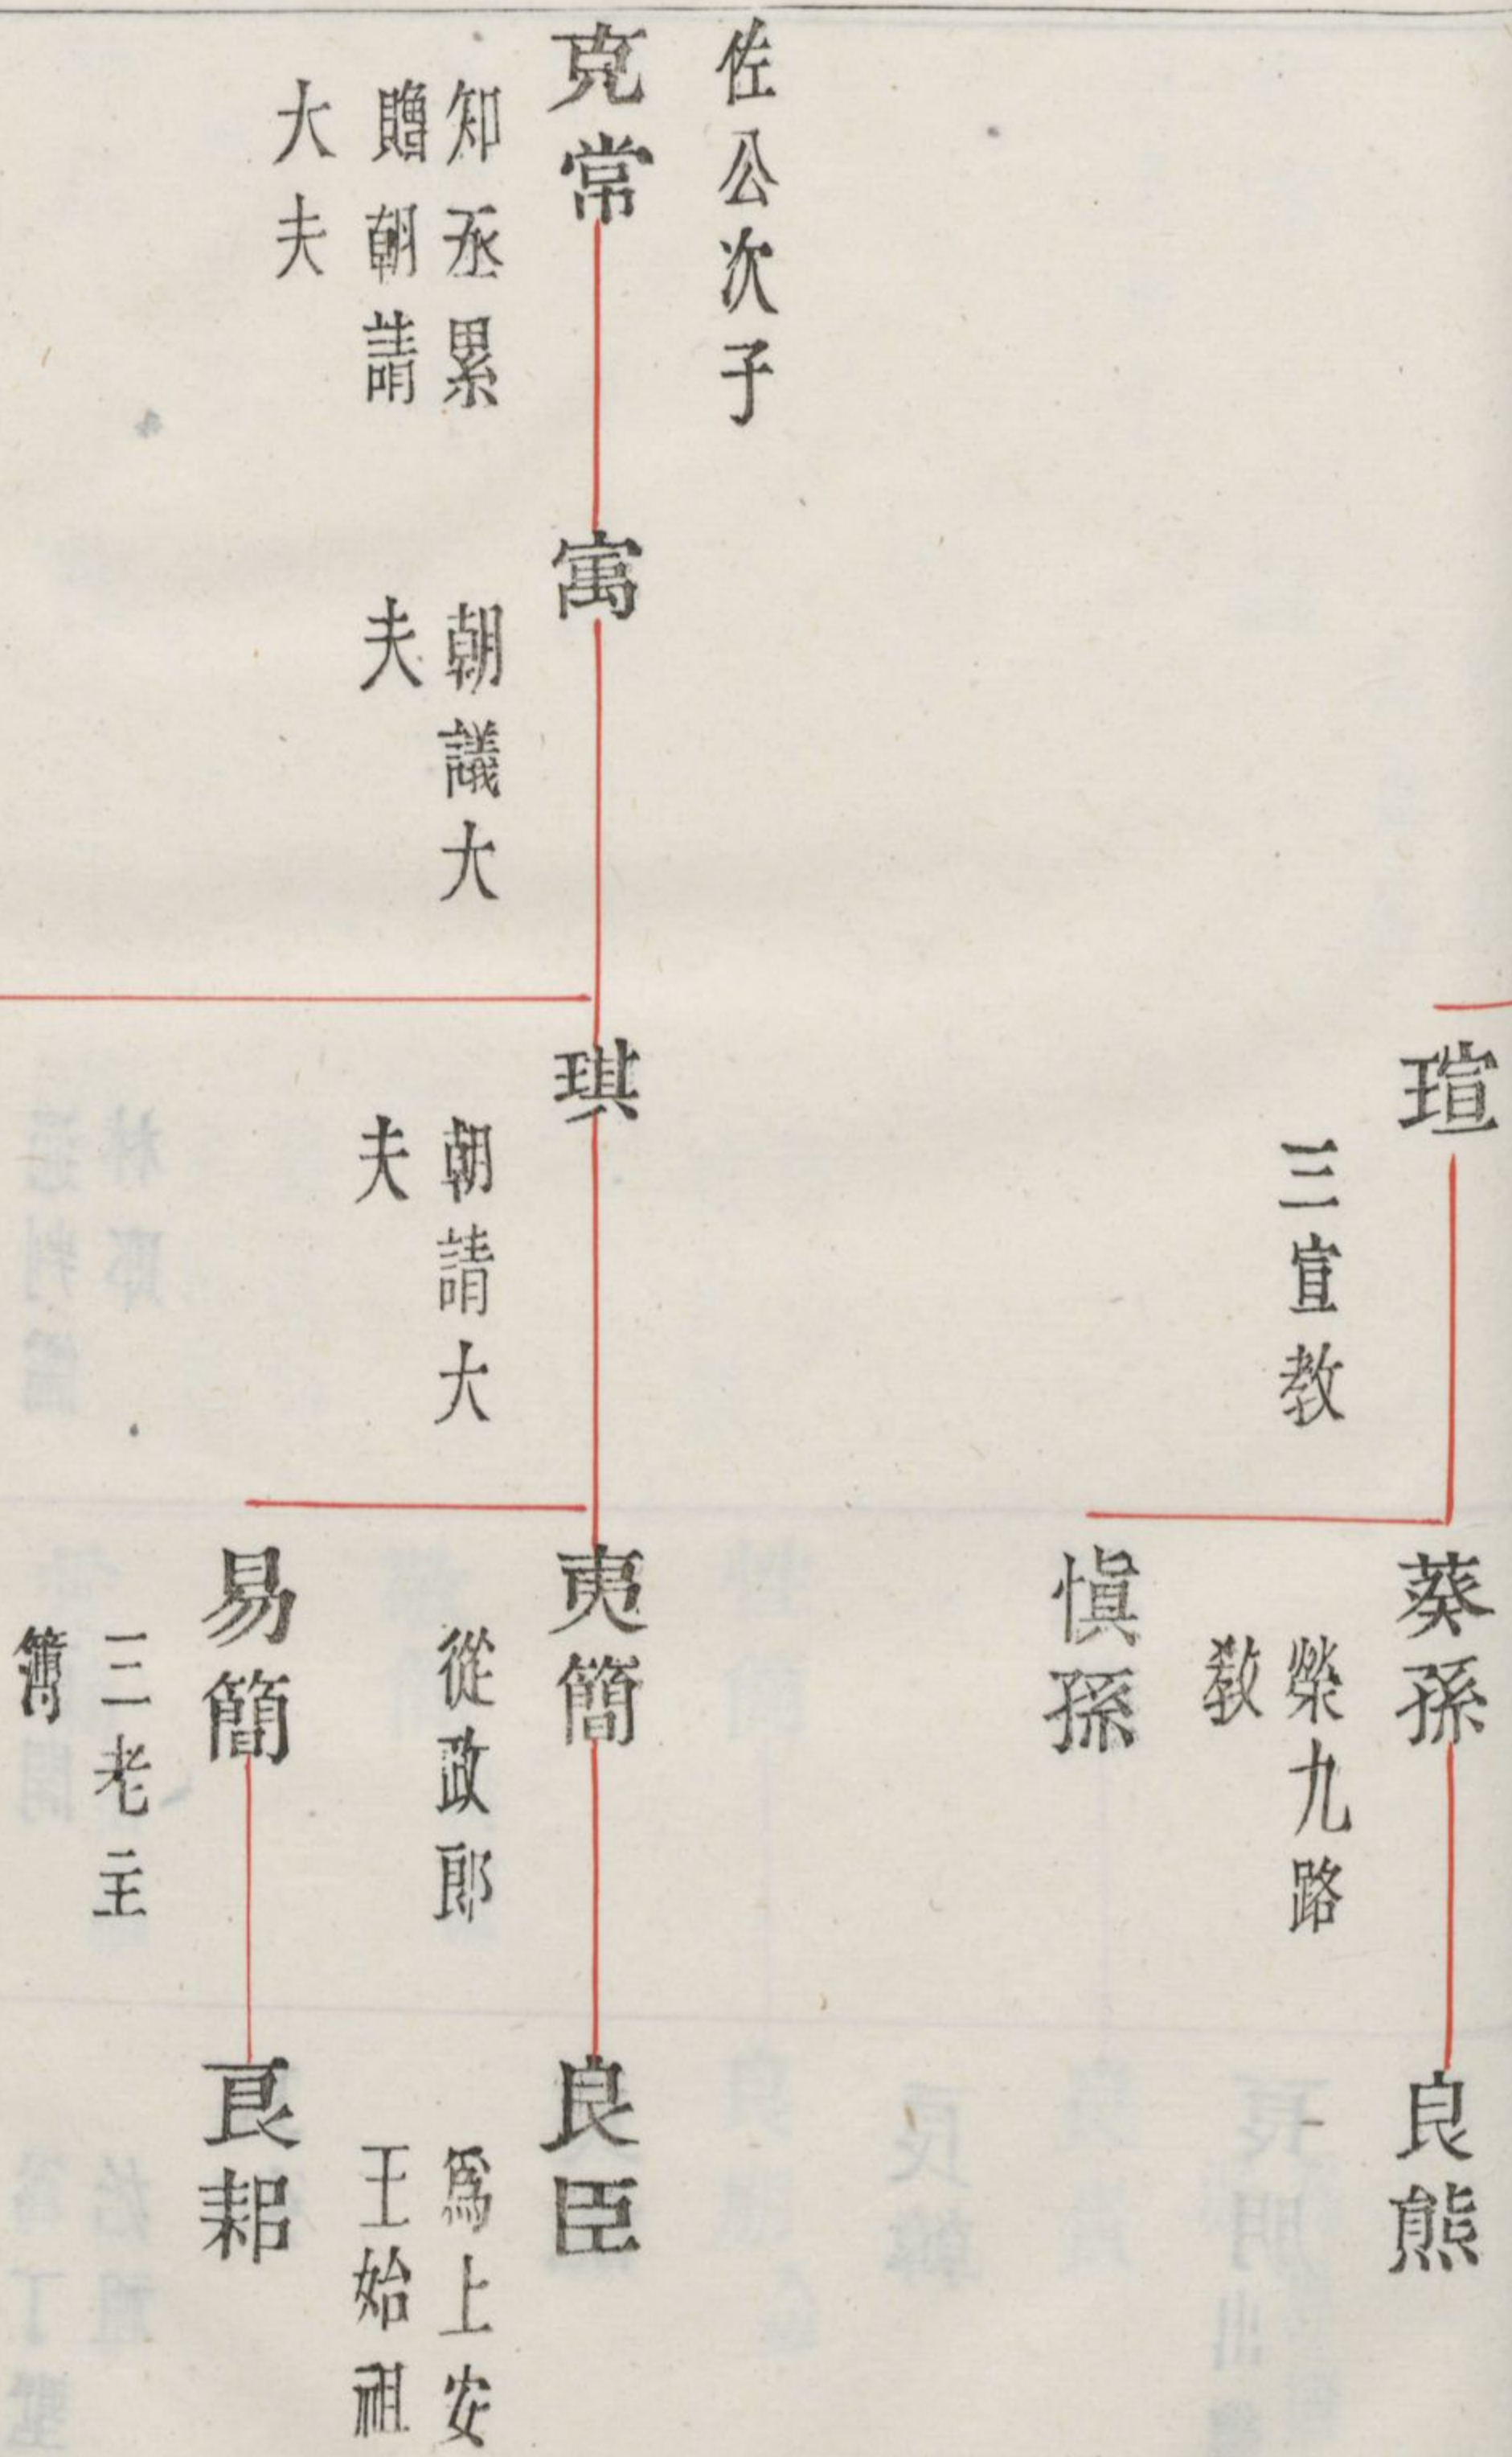 瑄
三宣教
葵孫
榮九路
教
良熊
愼孫
佐公次子
克常
知丞累
贈朝請
大夫
寓
朝議大
夫
琪
朝請大
夫
夷簡
從政郎
良臣
爲上安
王始祖
易簡
三老主
簿
良耜